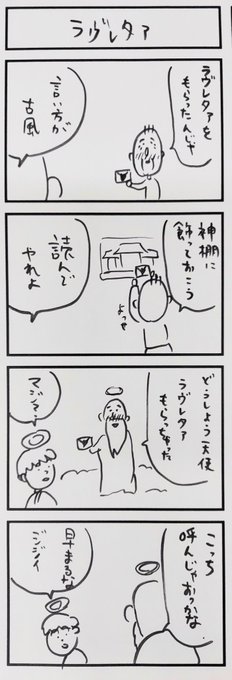 ラヴレタア
ラヴレタアを
もらったんじゃ
言い方が
古風
神棚に
飾っておこう
よっせ
読んで
やれよ
どうしよう天使
ラヴレタア
もらっちゃった
マジッスか
こっち
呼んじゃおっかな
早まるな
ジジイ